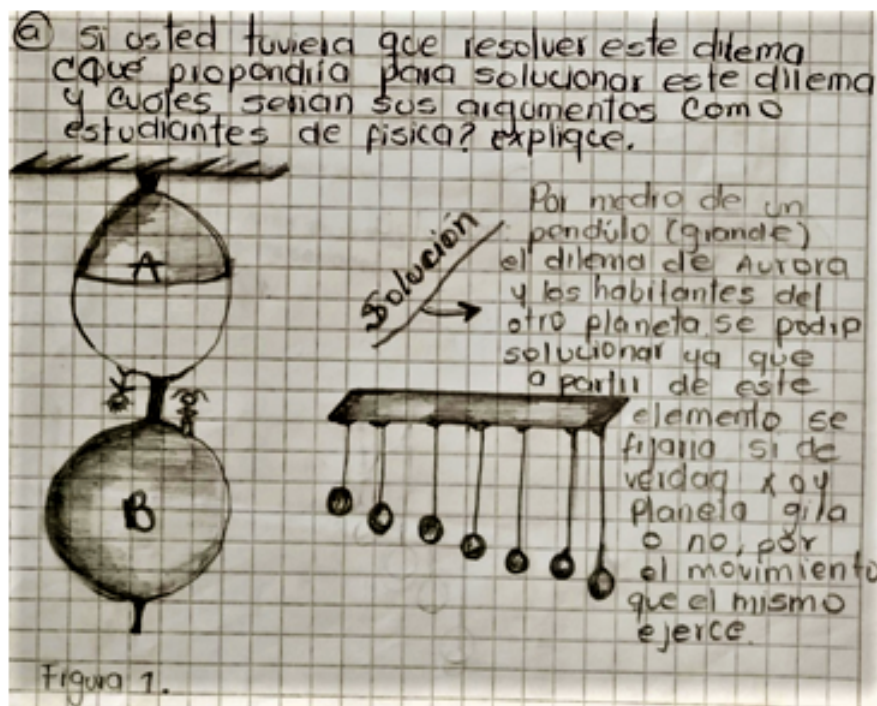 ⓐ si usted tuviera que resolver este dilema
¿Qué propondría para solucionar este dilema
y cuales serian sus argumentos como
estudiantes de fisica? explique.
A
B
Figura 1.
Solución
Por medio de un
pendúlo (grande)
el dilema de Aurora
y los habitantes del
otro planeta se podip
solucionar ya que
a partir de este
elemento se
fijaria si de
verdad x o y
Planeta gira
o no, por
el movimiento
que el mismo
ejerce.